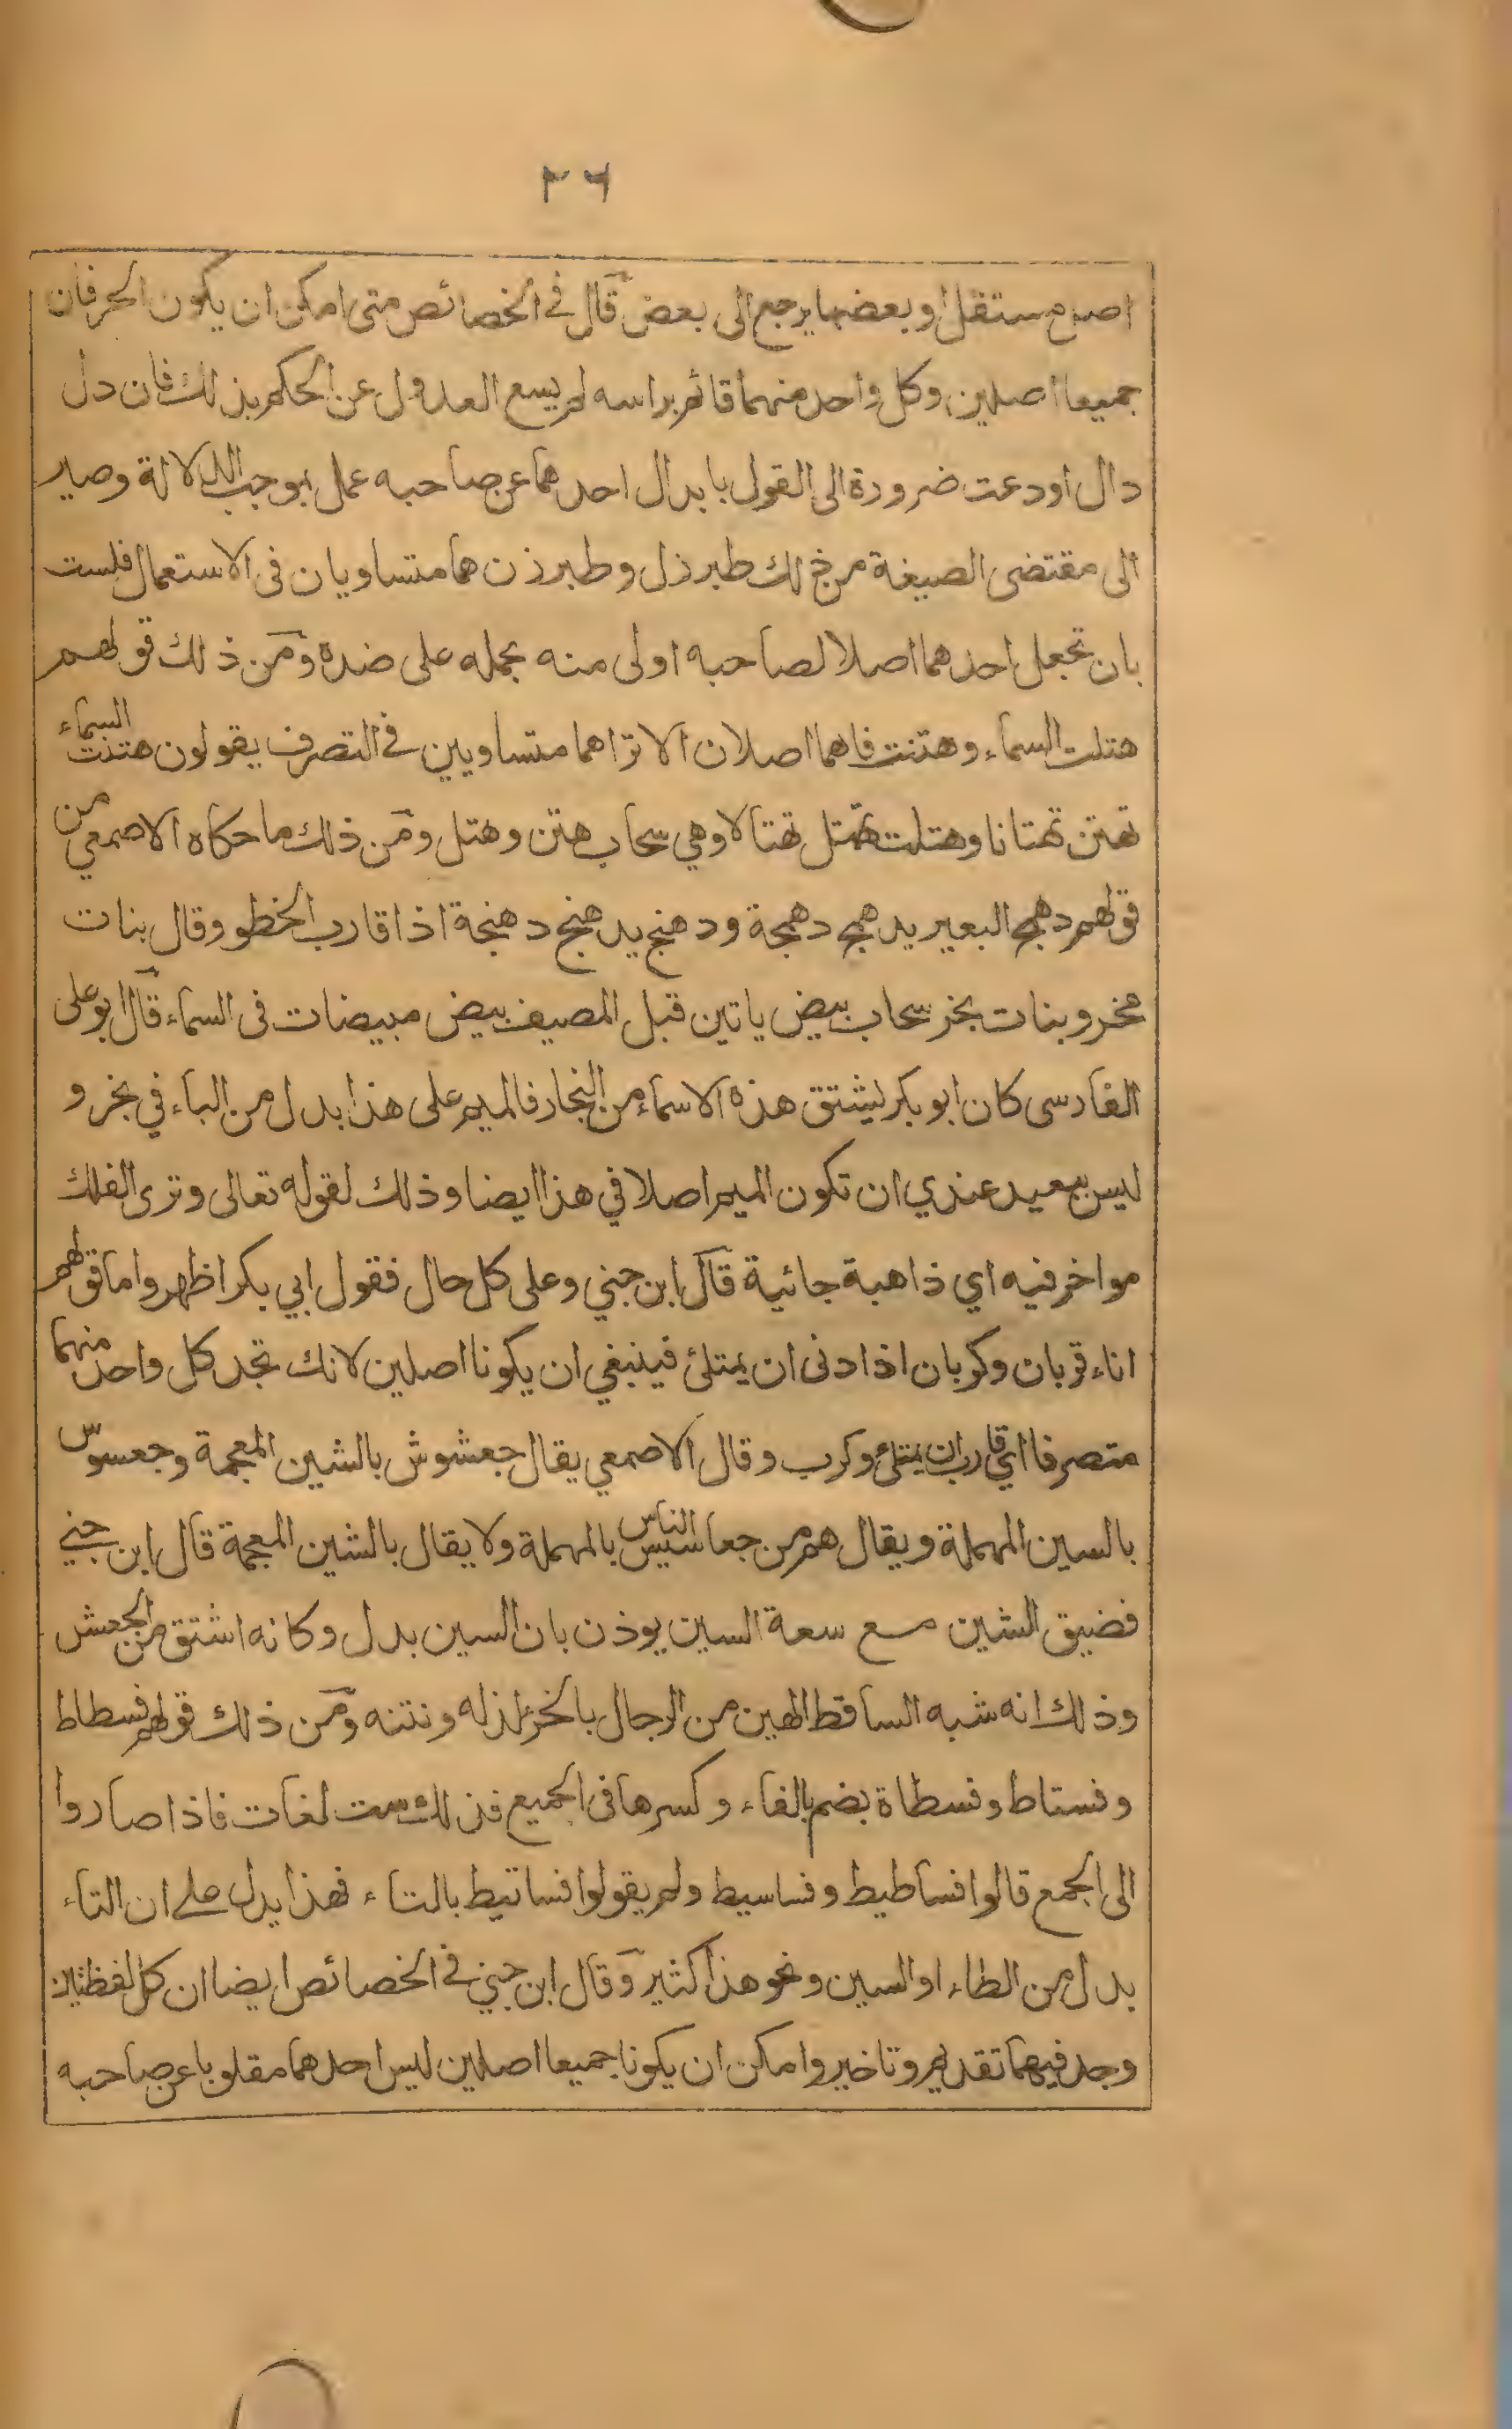 ٢٦
اصل مستقل او بعضها يرجع الى بعض قال في الخصائص متى امكن ان يكون الحرفان
جميعا اصلين وكل واحد منهما قائم براسه لم يسع العدول عن الحكم بذلك فان دل
دال او دعت ضرورة الى القول بابدال احدهما عن صاحبه عمل بموجب الدلالة وصير
الى مقتضى الصيغة من ذلك طبرزل وطبرزن هما متساويان في الاستعمال فلست
بان تجعل احدهما اصلا لصاحبه اولى منه بحمله على ضده ومن ذلك قولهم
هتلت السماء وهتنت فاهما اصلان الا تراهما متساويين في التصرف يقولون هتنت السماء
تهتن تهتانا وهتلت تهتل تهتالا وهي سحاب هتن وهتل ومن ذلك ما حكاه الاصمعي من
قولهم دهمج البعير يدهمج دهمجة ودهنج يدهنج دهنجة اذا قارب الخطو وقال بنات
مخر وبنات بخر سحاب بيض ياتين قبل المصيف بيض مبيضات في السماء قال ابو علي
الفارسي كان ابو بكر يشتق هذه الاسماء من البخار فالميم على هذا بدل من الباء في بخر و
ليس ببعيد عندي ان تكون الميم اصلا في هذا ايضا وذلك لقوله تعالى وترى الفلك
مواخر فيه اي ذاهبة جائية قال ابن جني وعلى كل حال فقول ابي بكر اظهر واما قولهم
اناء قربان وكربان اذا دنى ان يمتلئ فينبغي ان يكونا اصلين لانك تجد كل واحد منهما
متصرفا اي قارب ان يمتلئ وكرب وقال الاصمعي يقال جعشوش بالشين المعجمة وجعسوس
بالسين المهملة ويقال هم من جعاسيس الناس بالمهملة ولا يقال بالشين المعجمة قال ابن جني
فضيق الشين مع سعة السين يوذن بان السين بدل وكانه اشتق من الجعش
وذلك انه شبه الساقط المهين من الرجال بالخرء لذله ونتنه ومن ذلك قولهم فسطاط
وفستاط وفسطاة بضم الفاء وكسرها في الجميع فذلك ست لغات فاذا صاروا
الى الجمع قالوا فساطيط وفساسيط ولم يقولوا فساتيط بالتاء فهذا يدل على ان التاء
بدل من الطاء او السين ونحو هذا كثير وقال ابن جني في الخصائص ايضا ان كل لفظين
وجد فيهما تقديم وتاخير وامكن ان يكونا جميعا اصلين ليس احدهما مقلوبا عن صاحبه